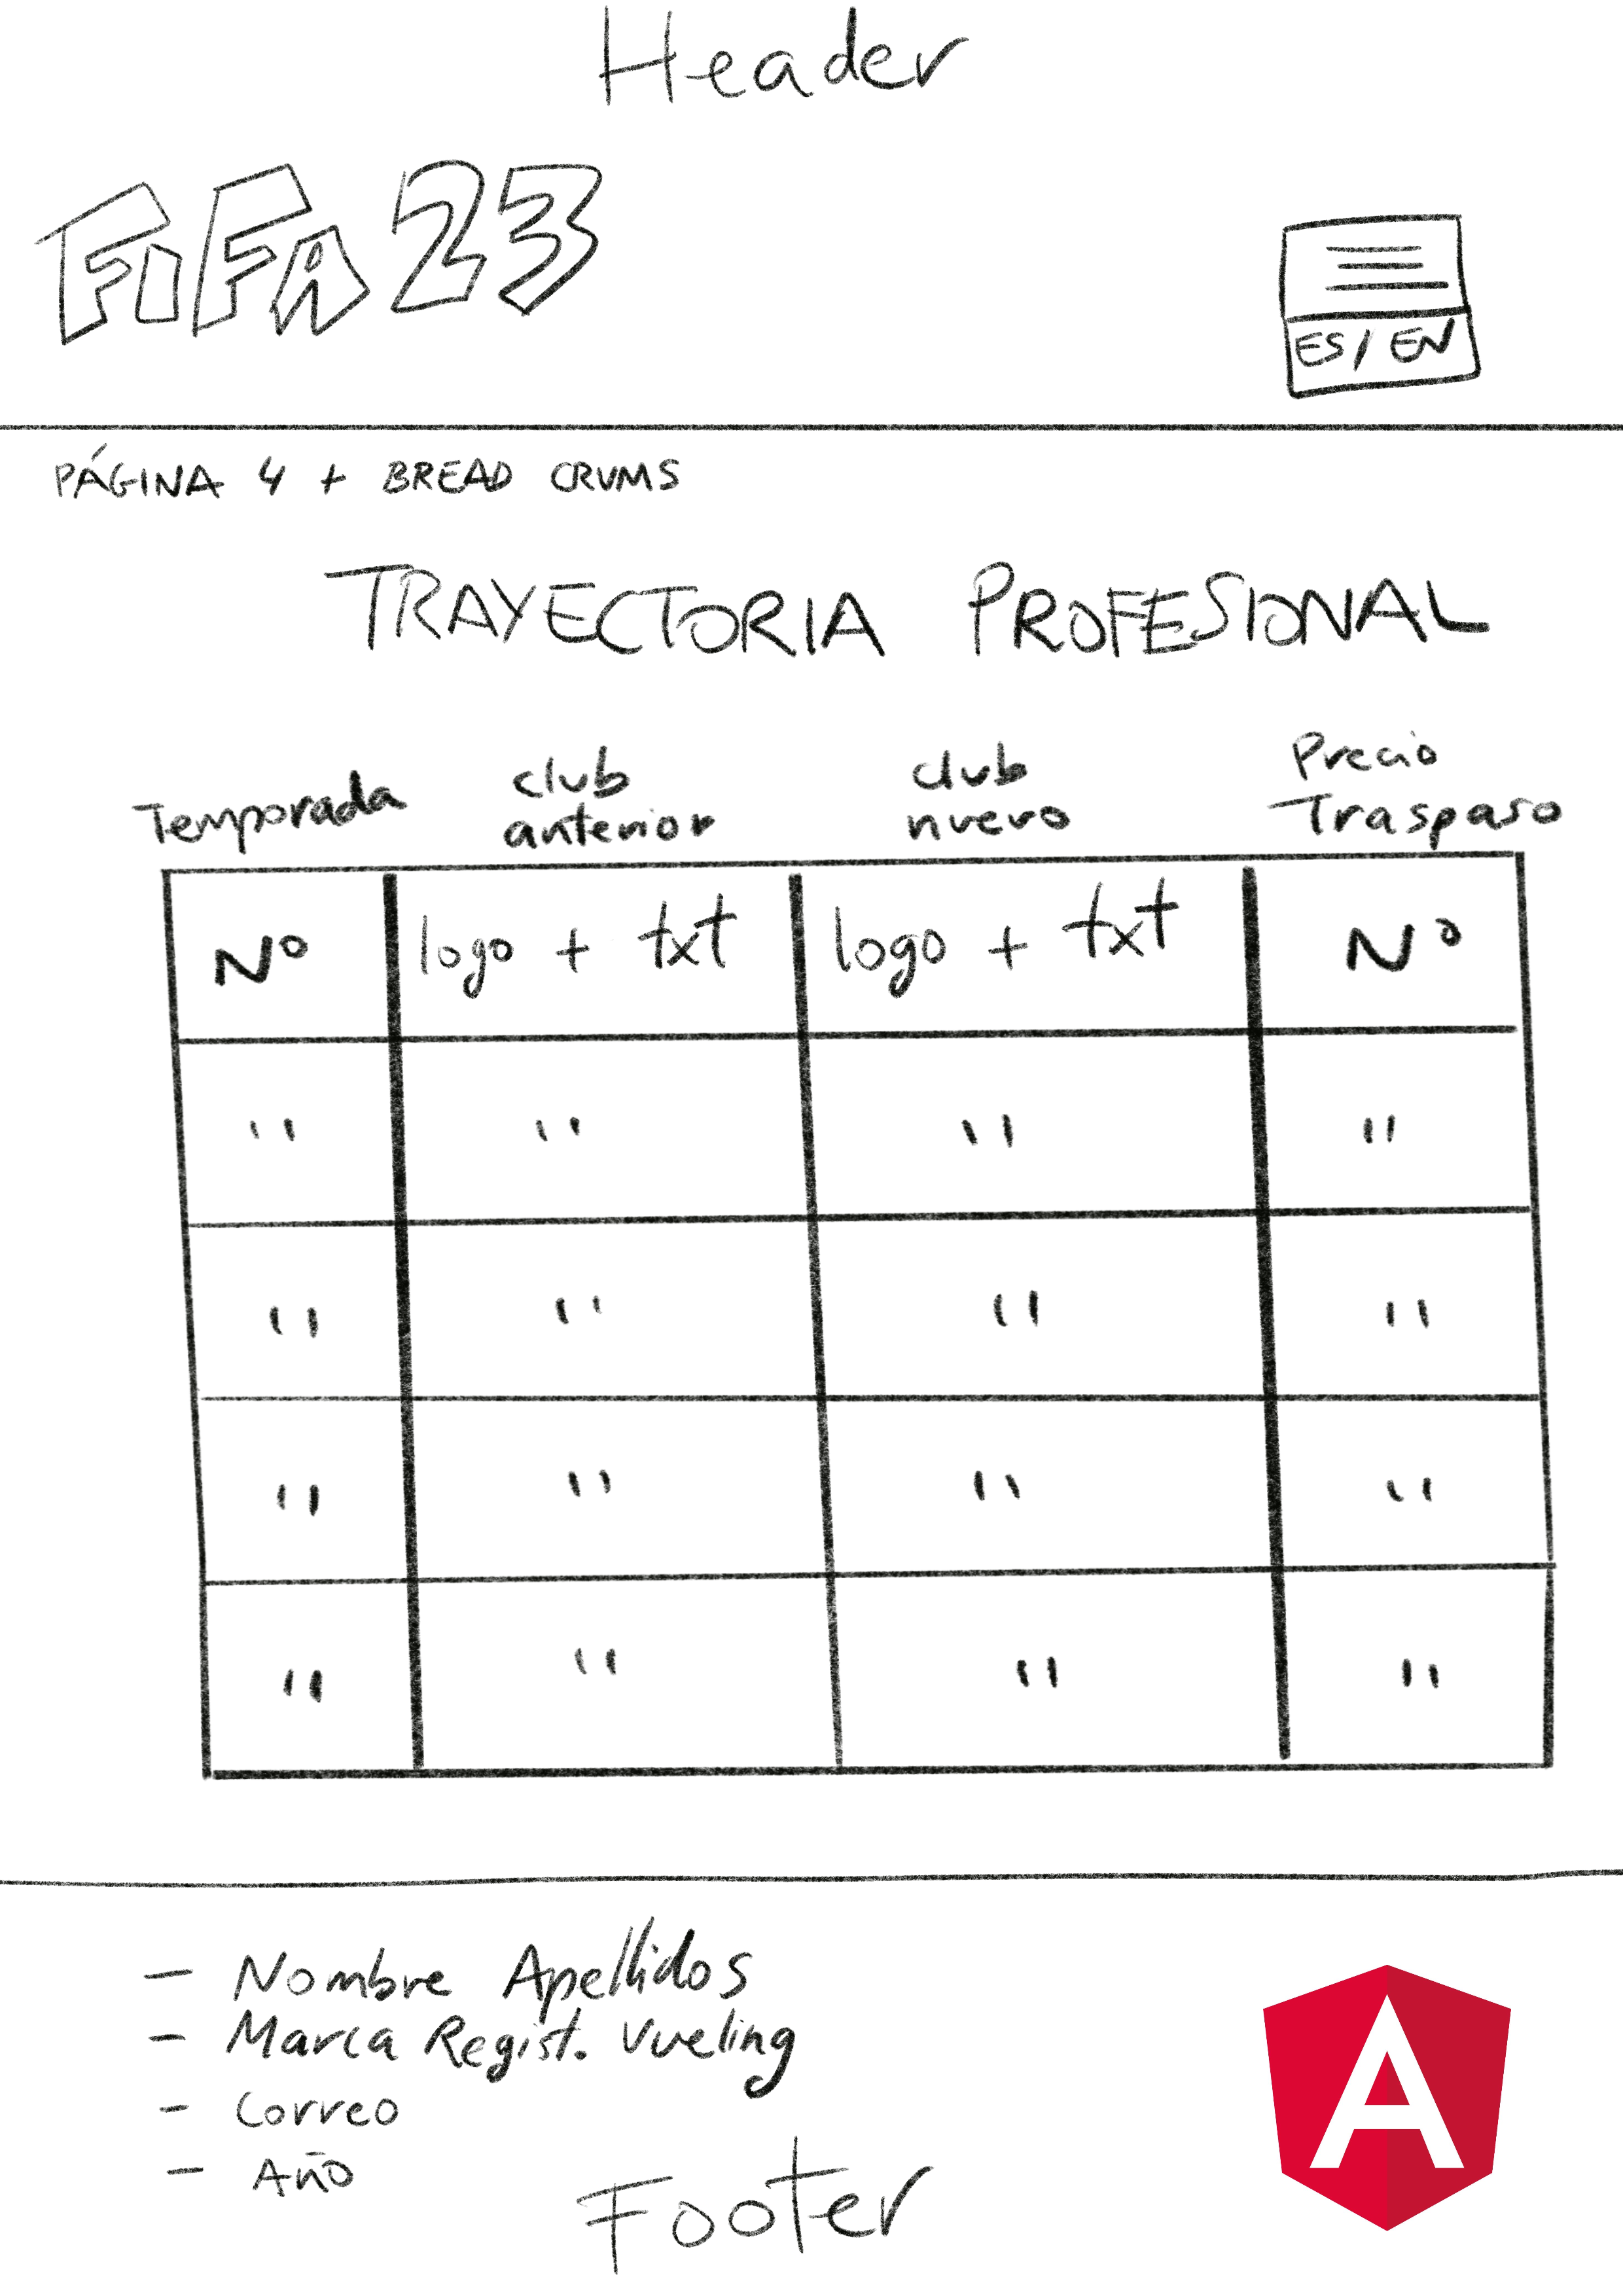 Header
FiFA 23
ES / EN
PÁGINA 4 + BREAD CRUMS
TRAYECTORIA PROFESIONAL
Temporada club anterior club nuevo Precio Traspaso
Nº logo + txt logo + txt Nº
" " " "
" " " "
" " " "
" " " "
- Nombre Apellidos
- Marca Regist. Vueling
- Correo
- Año
Footer
A